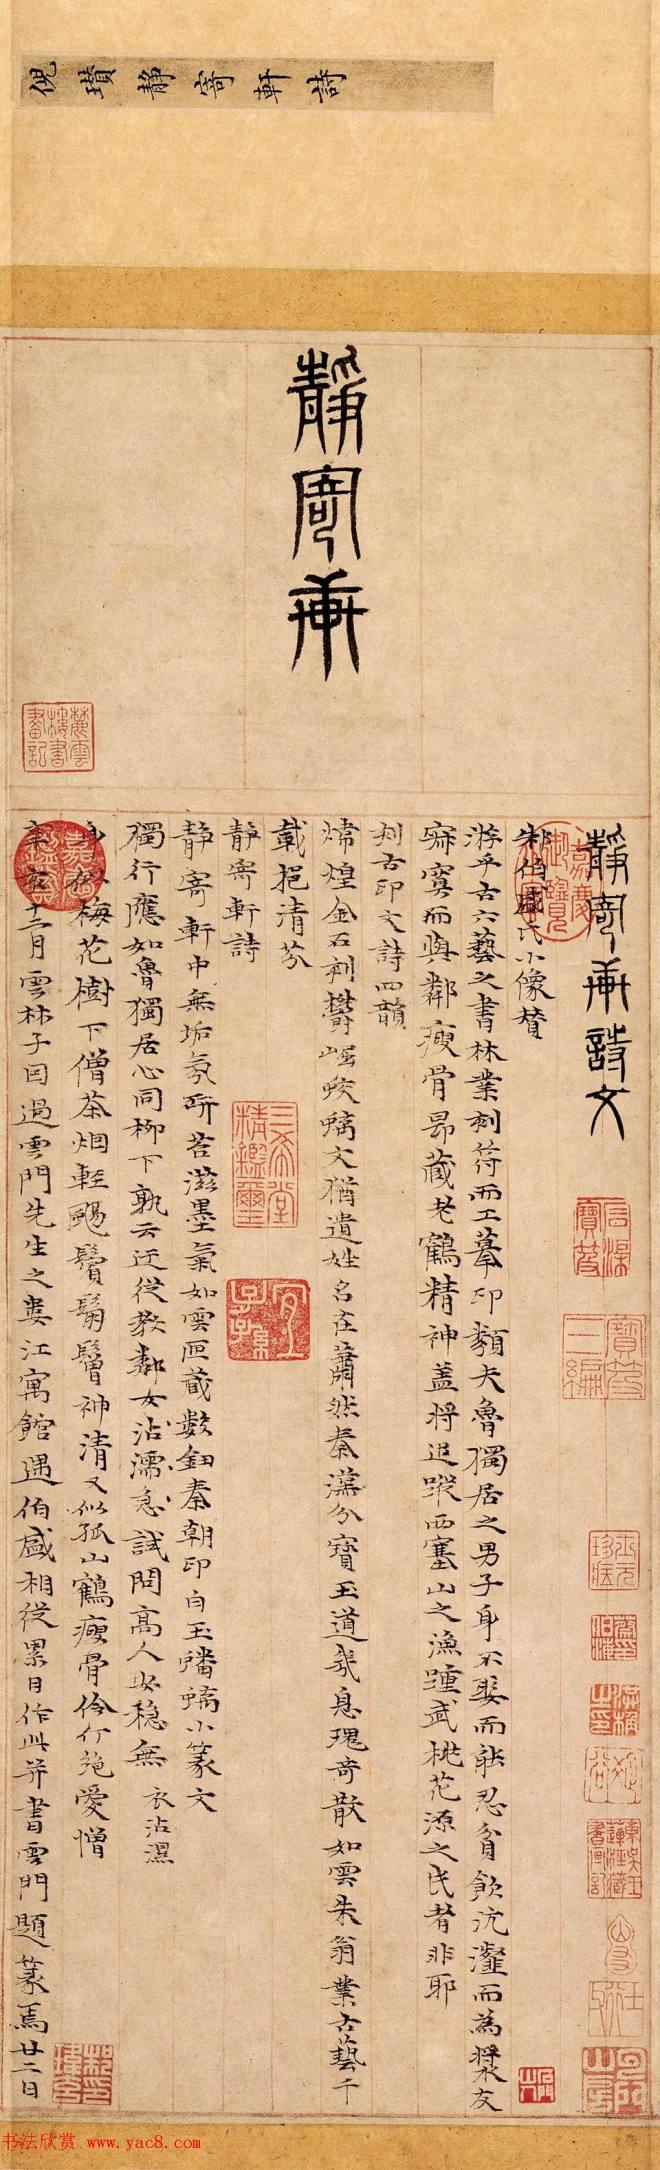 倪瓚静寄軒詩
靜寄軒
靜寄軒詩文
朱伯盛氏小像贊
游乎古六藝之書林業刻符而工摹印類夫魯獨居之男子身不娶而能忍貧飲沆瀣而為漿友
寂寞而與鄰瘦骨昂藏老鶴精神蓋將追蹤西塞山之漁踵武桃花源之民者非耶
刻古印文詩四韻
煒煌金石刻欝崛蛟螭文猶遺姓名在蕭然秦漢分寶玉道氣息瑰奇散如雲朱翁業古藝千
載挹清芬
静寄軒詩
静寄軒中無垢氛研苔滋墨氣如雲匣藏數鈕秦朝印白玉蟠螭小篆文
獨行應如魯獨居心同柳下孰云迂從教鄰女沾濡急試問高人安穩無 衣沾濕
梅花樹下僧茶烟輕颺鬢鬅鬙神清又似孤山鶴瘦骨伶仃絕愛憎
十二月雲林子因過雲門先生之婁江寓館遇伯盛相從累日作此并書雲門題篆焉廿二日
书法欣赏 www.yac8.com